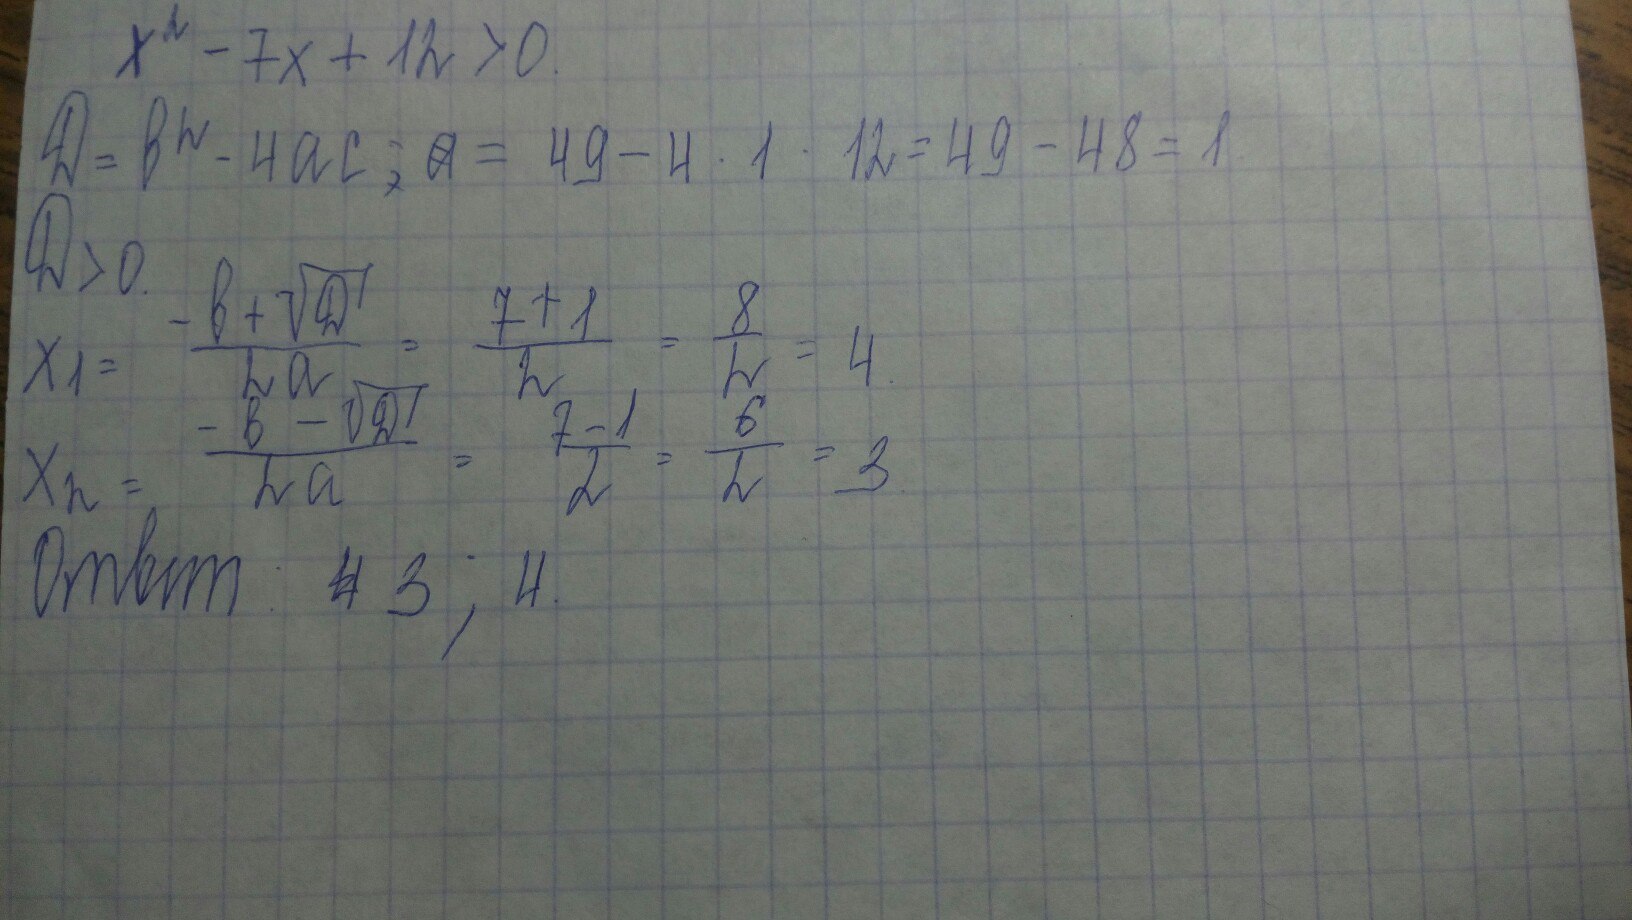 x² - 7x + 12 > 0.
D = b² - 4ac; a = 49 - 4 · 1 · 12 = 49 - 48 = 1.
D > 0.
x₁ = (-b + √D)/(2a) = (7 + 1)/2 = 8/2 = 4.
x₂ = (-b - √D)/(2a) = (7 - 1)/2 = 6/2 = 3.
Ответ: 3; 4.